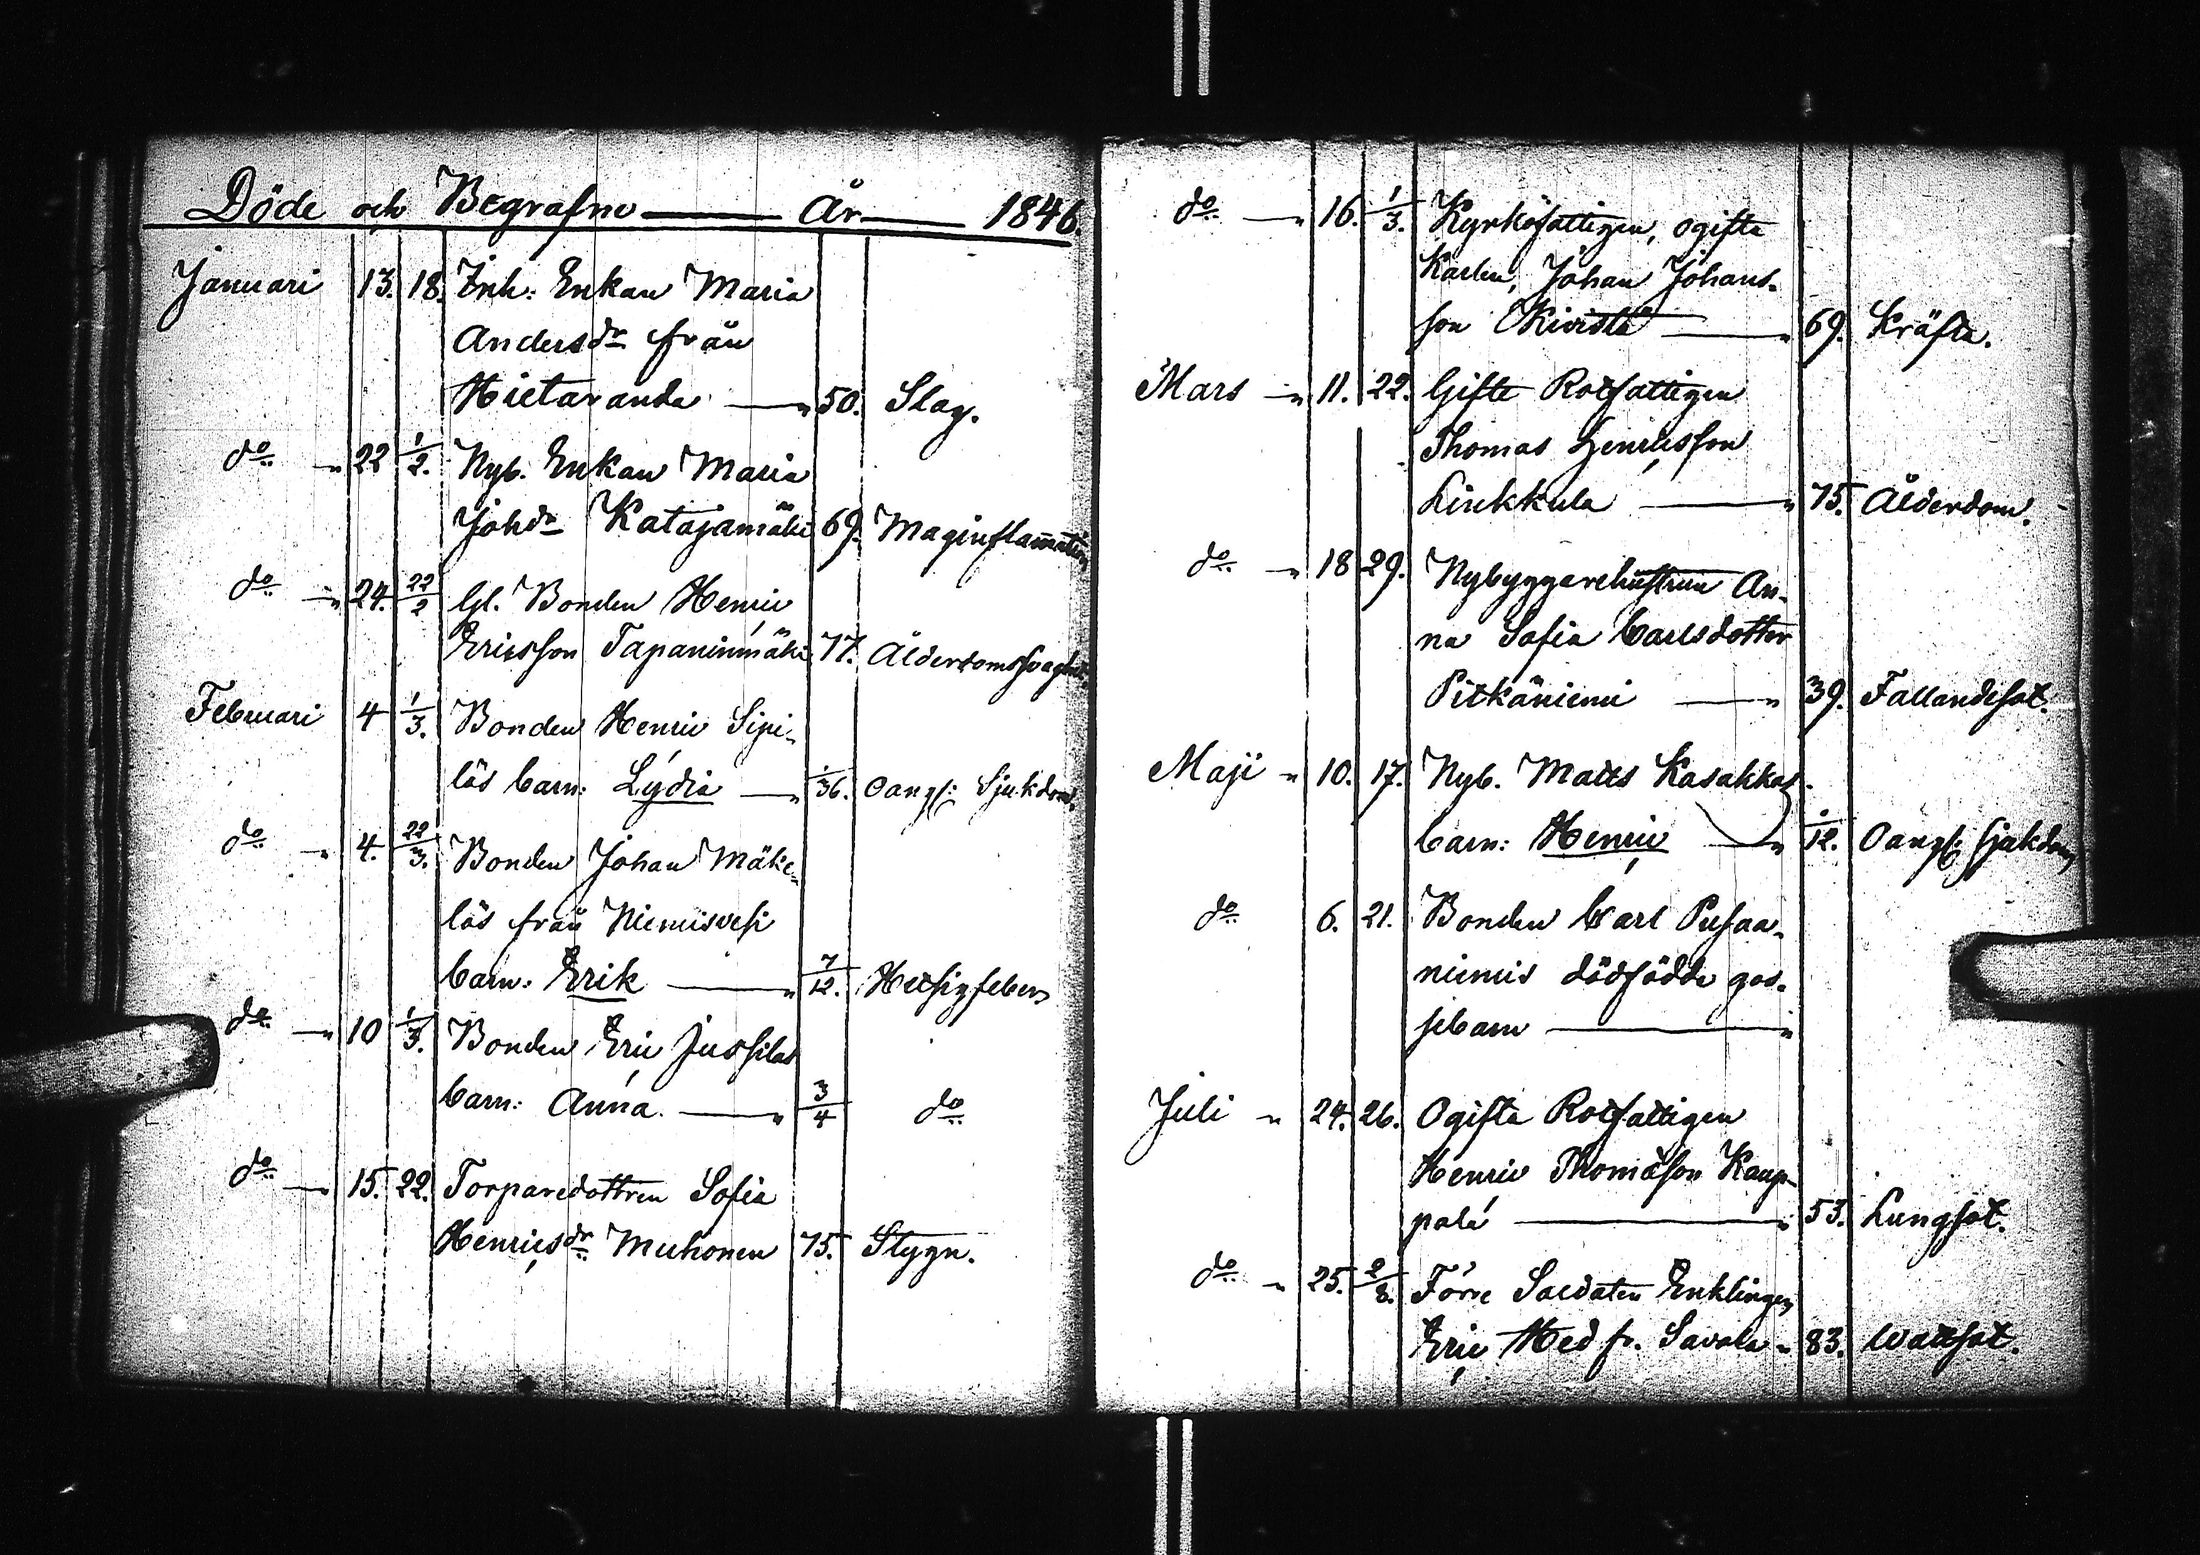 Döde och Begrafne ——— År ——— 1846.
Januari 13. 18. Inh: Enkan Maria
Andersdr från
Hietaranda — 50. Slag.
do 22 1/2. Nyb. Enkan Maria
Johdr Katajamäki 69. Maginflamation
do 24. 22/2 Gl. Bonden Henric
Ericsson Tapaninmäki 77. Ålderdomssvaghet
Februari 4 1/3. Bonden Henric Sipi-
läs barn: Lydia — 1/36. Oangf: Sjukdom.
do 4. 22/3. Bonden Johan Mäke-
läs från Niemisvesi
barn: Erik — 7/12. Hetsigfeber
do 10 1/3. Bonden Eric Jussilas
barn: Anna. — 3/4 do
do 15. 22. Torparedottren Sofia
Henricsdr Muhonen 75. Stygn.
do 16. 1/3. Kyrkofattigen, ogifte
Karlen, Johan Johans-
son Kivistö — 69. Kräfta.
Mars 11. 22. Gifte Rotfattigen
Thomas Henricsson
Liukkula — 75. Ålderdom.
do 18 29. Nybyggarehustrun An-
na Sofia Carlsdotter
Pitkäniemi — 39. Fallandesot.
Maji 10. 17. Nyb. Matts Kasakkas
barn: Henric — 1/12. Oangf: sjukdom
do 6. 21. Bonden Carl Pusaa-
niemis dödfödde gos-
sebarn —
Juli 24. 26. Ogifte Rotfattigen
Henric Thomasson Kaup-
pala — 53. Lungsot.
do 25. 2/8. Förre Soldaten Enklingen
Eric Hed fr. Savola - 83. Wattsot.